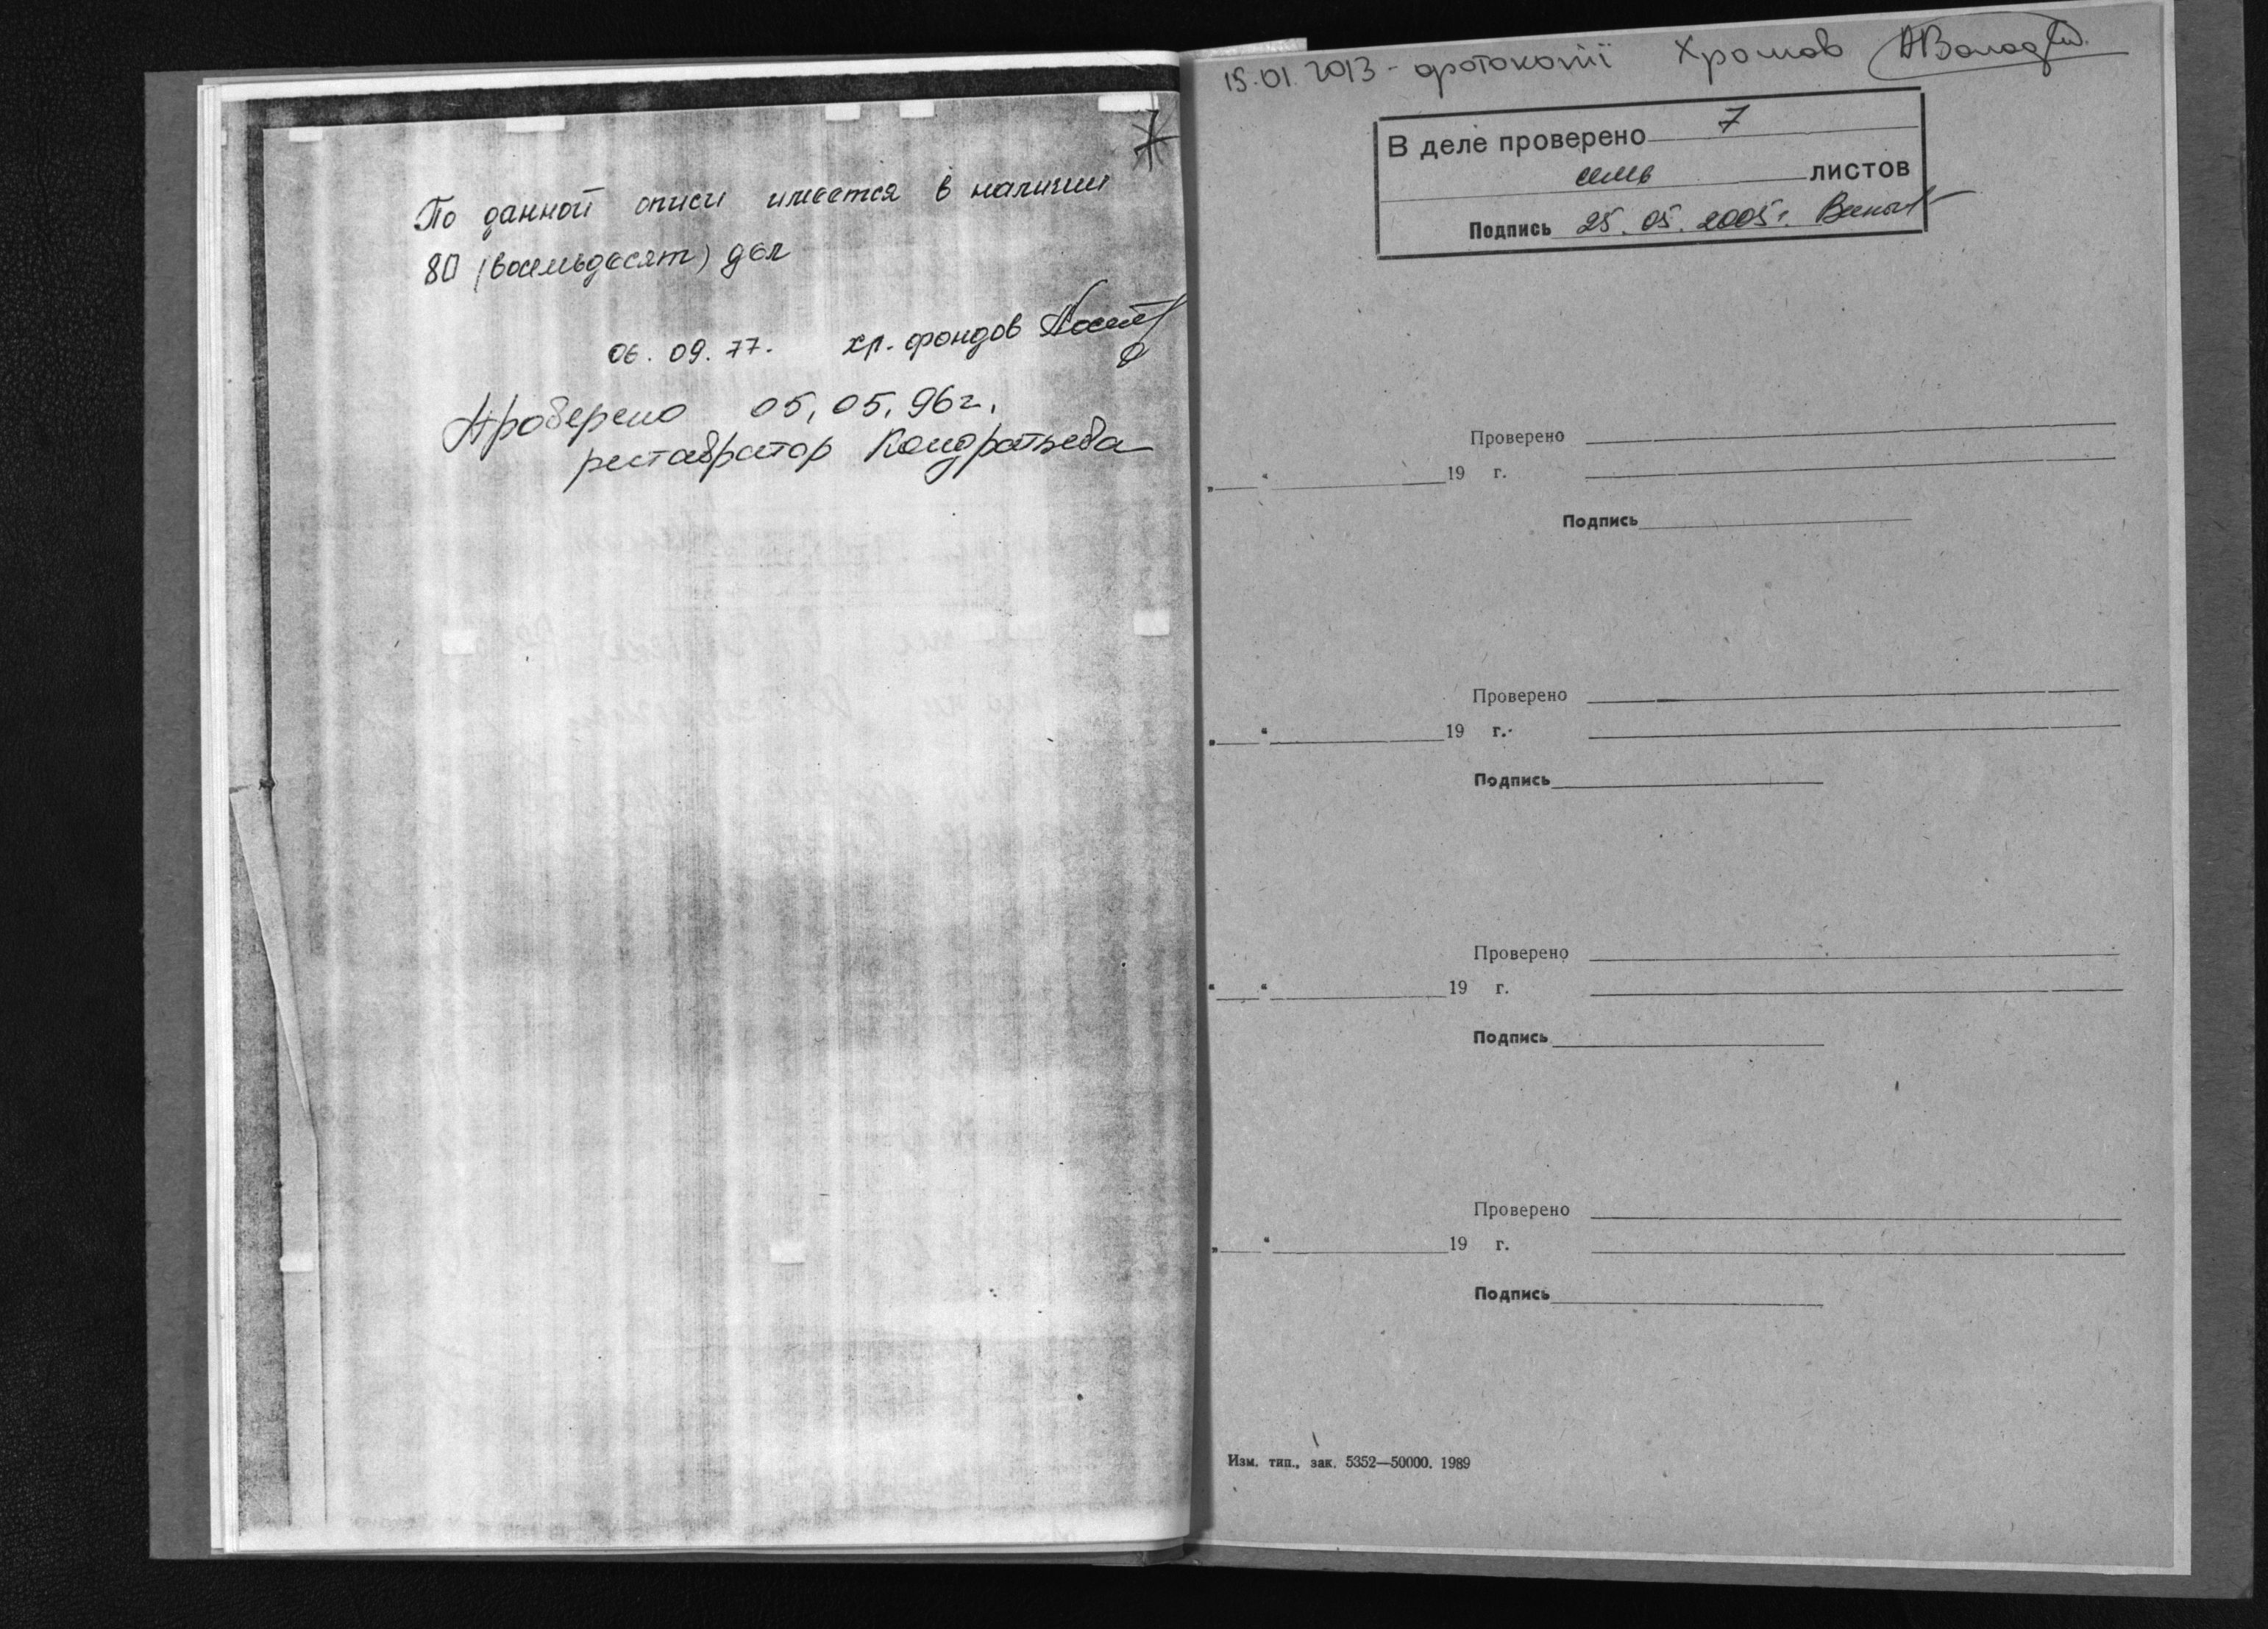 7
По данной описи имеется в наличии
80 (восемьдесят) дел
06.09.77. хр. фондов
Проверено 05.05.96г.
реставратор Кондратьева
15.01.2013 - фотокопії Хромов
В деле проверено 7
семь листов
Подпись 25.05.2005г.
Проверено
„ “ 19 г.
Подпись
Проверено
„ “ 19 г.
Подпись
Проверено
“ “ 19 г.
Подпись
Проверено
„ “ 19 г.
Подпись
Изм. тип., зак. 5352—50000. 1989